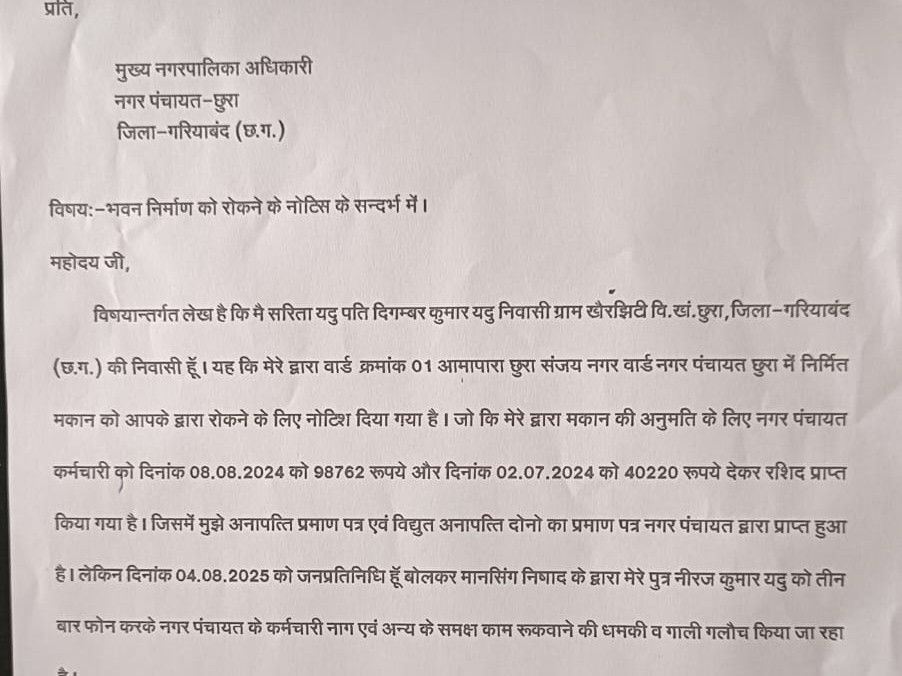 प्रति,
मुख्य नगरपालिका अधिकारी
नगर पंचायत-छुरा
जिला-गरियाबंद (छ.ग.)
विषय:-भवन निर्माण को रोकने के नोटिस के सन्दर्भ में।
महोदय जी,
विषयान्तर्गत लेख है कि मै सरिता यदु पति दिगम्बर कुमार यदु निवासी ग्राम खैरझिटी वि.खं.छुरा,जिला-गरियाबंद
(छ.ग.) की निवासी हूँ। यह कि मेरे द्वारा वार्ड क्रमांक 01 आमापारा छुरा संजय नगर वार्ड नगर पंचायत छुरा में निर्मित
मकान को आपके द्वारा रोकने के लिए नोटिश दिया गया है। जो कि मेरे द्वारा मकान की अनुमति के लिए नगर पंचायत
कर्मचारी को दिनांक 08.08.2024 को 98762 रूपये और दिनांक 02.07.2024 को 40220 रूपये देकर रशिद प्राप्त
किया गया है। जिसमें मुझे अनापत्ति प्रमाण पत्र एवं विद्युत अनापत्ति दोनो का प्रमाण पत्र नगर पंचायत द्वारा प्राप्त हुआ
है। लेकिन दिनांक 04.08.2025 को जनप्रतिनिधि हूँ बोलकर मानसिंग निषाद के द्वारा मेरे पुत्र नीरज कुमार यदु को तीन
बार फोन करके नगर पंचायत के कर्मचारी नाग एवं अन्य के समक्ष काम रूकवाने की धमकी व गाली गलौच किया जा रहा
है।